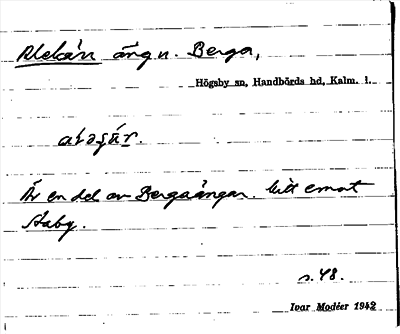 äng u. Berga,
Högsby sn, Handbörds hd, Kalm. l.
Är en del av Bergaängar. bitt emot
Staby.
s. 48.
Ivar Modéer 1942